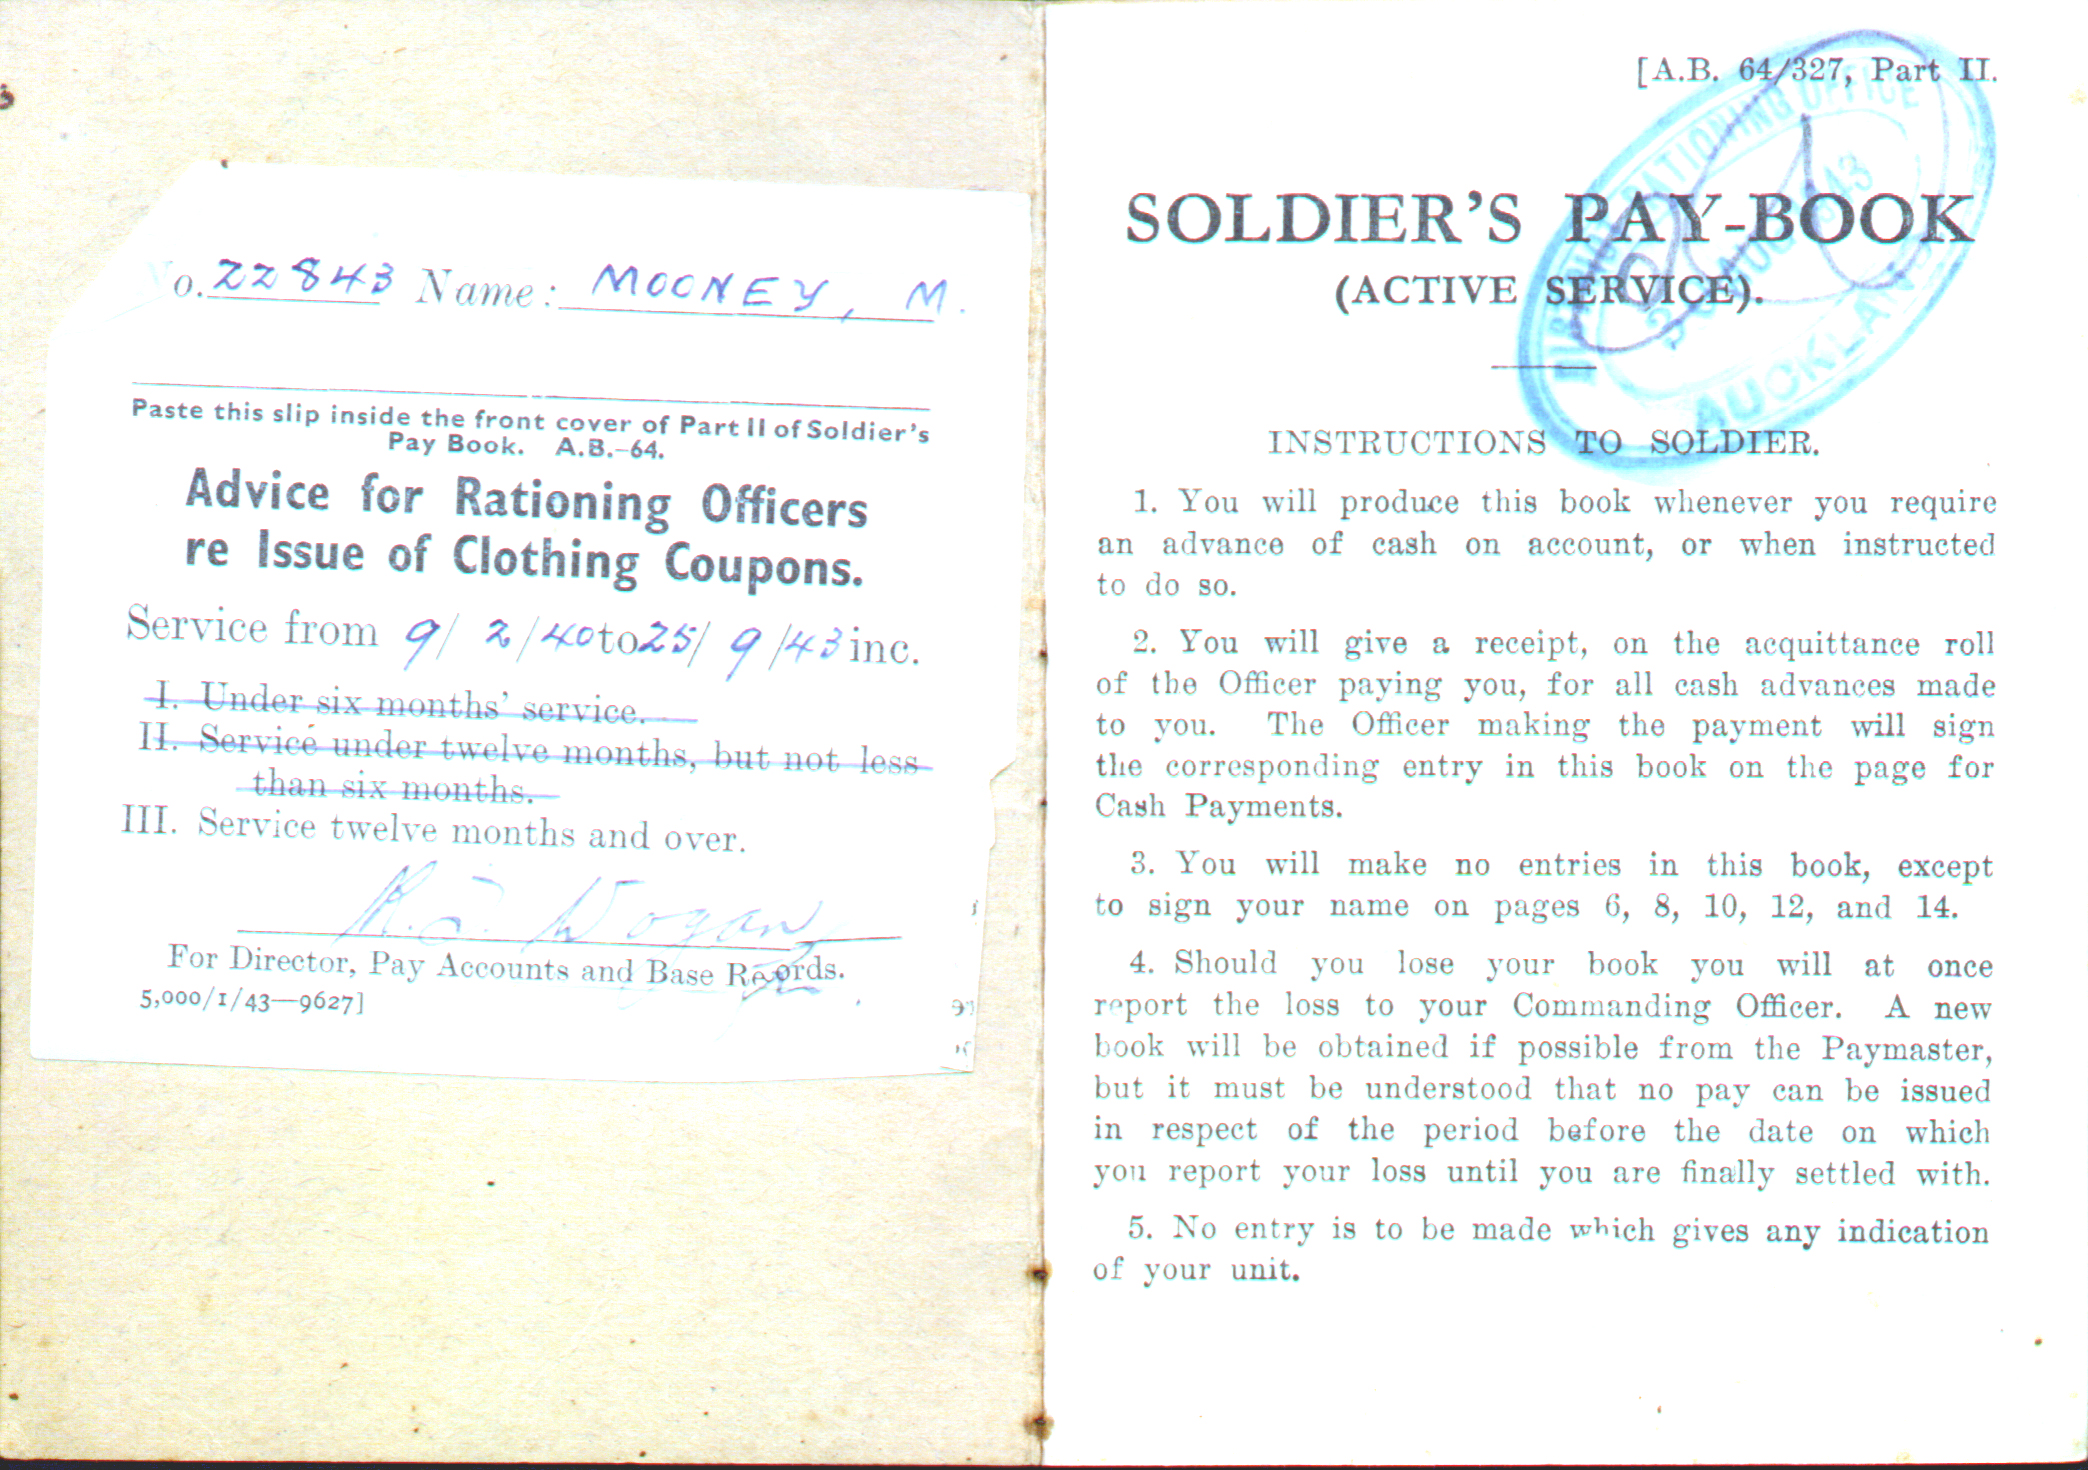 No. 22843 Name: MOONEY, M.
Paste this slip inside the front cover of Part II of Soldier's
Pay Book. A.B.–64.
Advice for Rationing Officers
re Issue of Clothing Coupons.
Service from 9/ 2/40 to 25/ 9/43 inc.
I. Under six months' service.
II. Service under twelve months, but not less
than six months.
III. Service twelve months and over.
For Director, Pay Accounts and Base Records.
5,000/1/43—9627]
[A.B. 64/327, Part II.
RATIONING OFFICE
AUCKLAND
SOLDIER'S PAY-BOOK
(ACTIVE SERVICE).
INSTRUCTIONS TO SOLDIER.
1. You will produce this book whenever you require
an advance of cash on account, or when instructed
to do so.
2. You will give a receipt, on the acquittance roll
of the Officer paying you, for all cash advances made
to you. The Officer making the payment will sign
the corresponding entry in this book on the page for
Cash Payments.
3. You will make no entries in this book, except
to sign your name on pages 6, 8, 10, 12, and 14.
4. Should you lose your book you will at once
report the loss to your Commanding Officer. A new
book will be obtained if possible from the Paymaster,
but it must be understood that no pay can be issued
in respect of the period before the date on which
you report your loss until you are finally settled with.
5. No entry is to be made which gives any indication
of your unit.